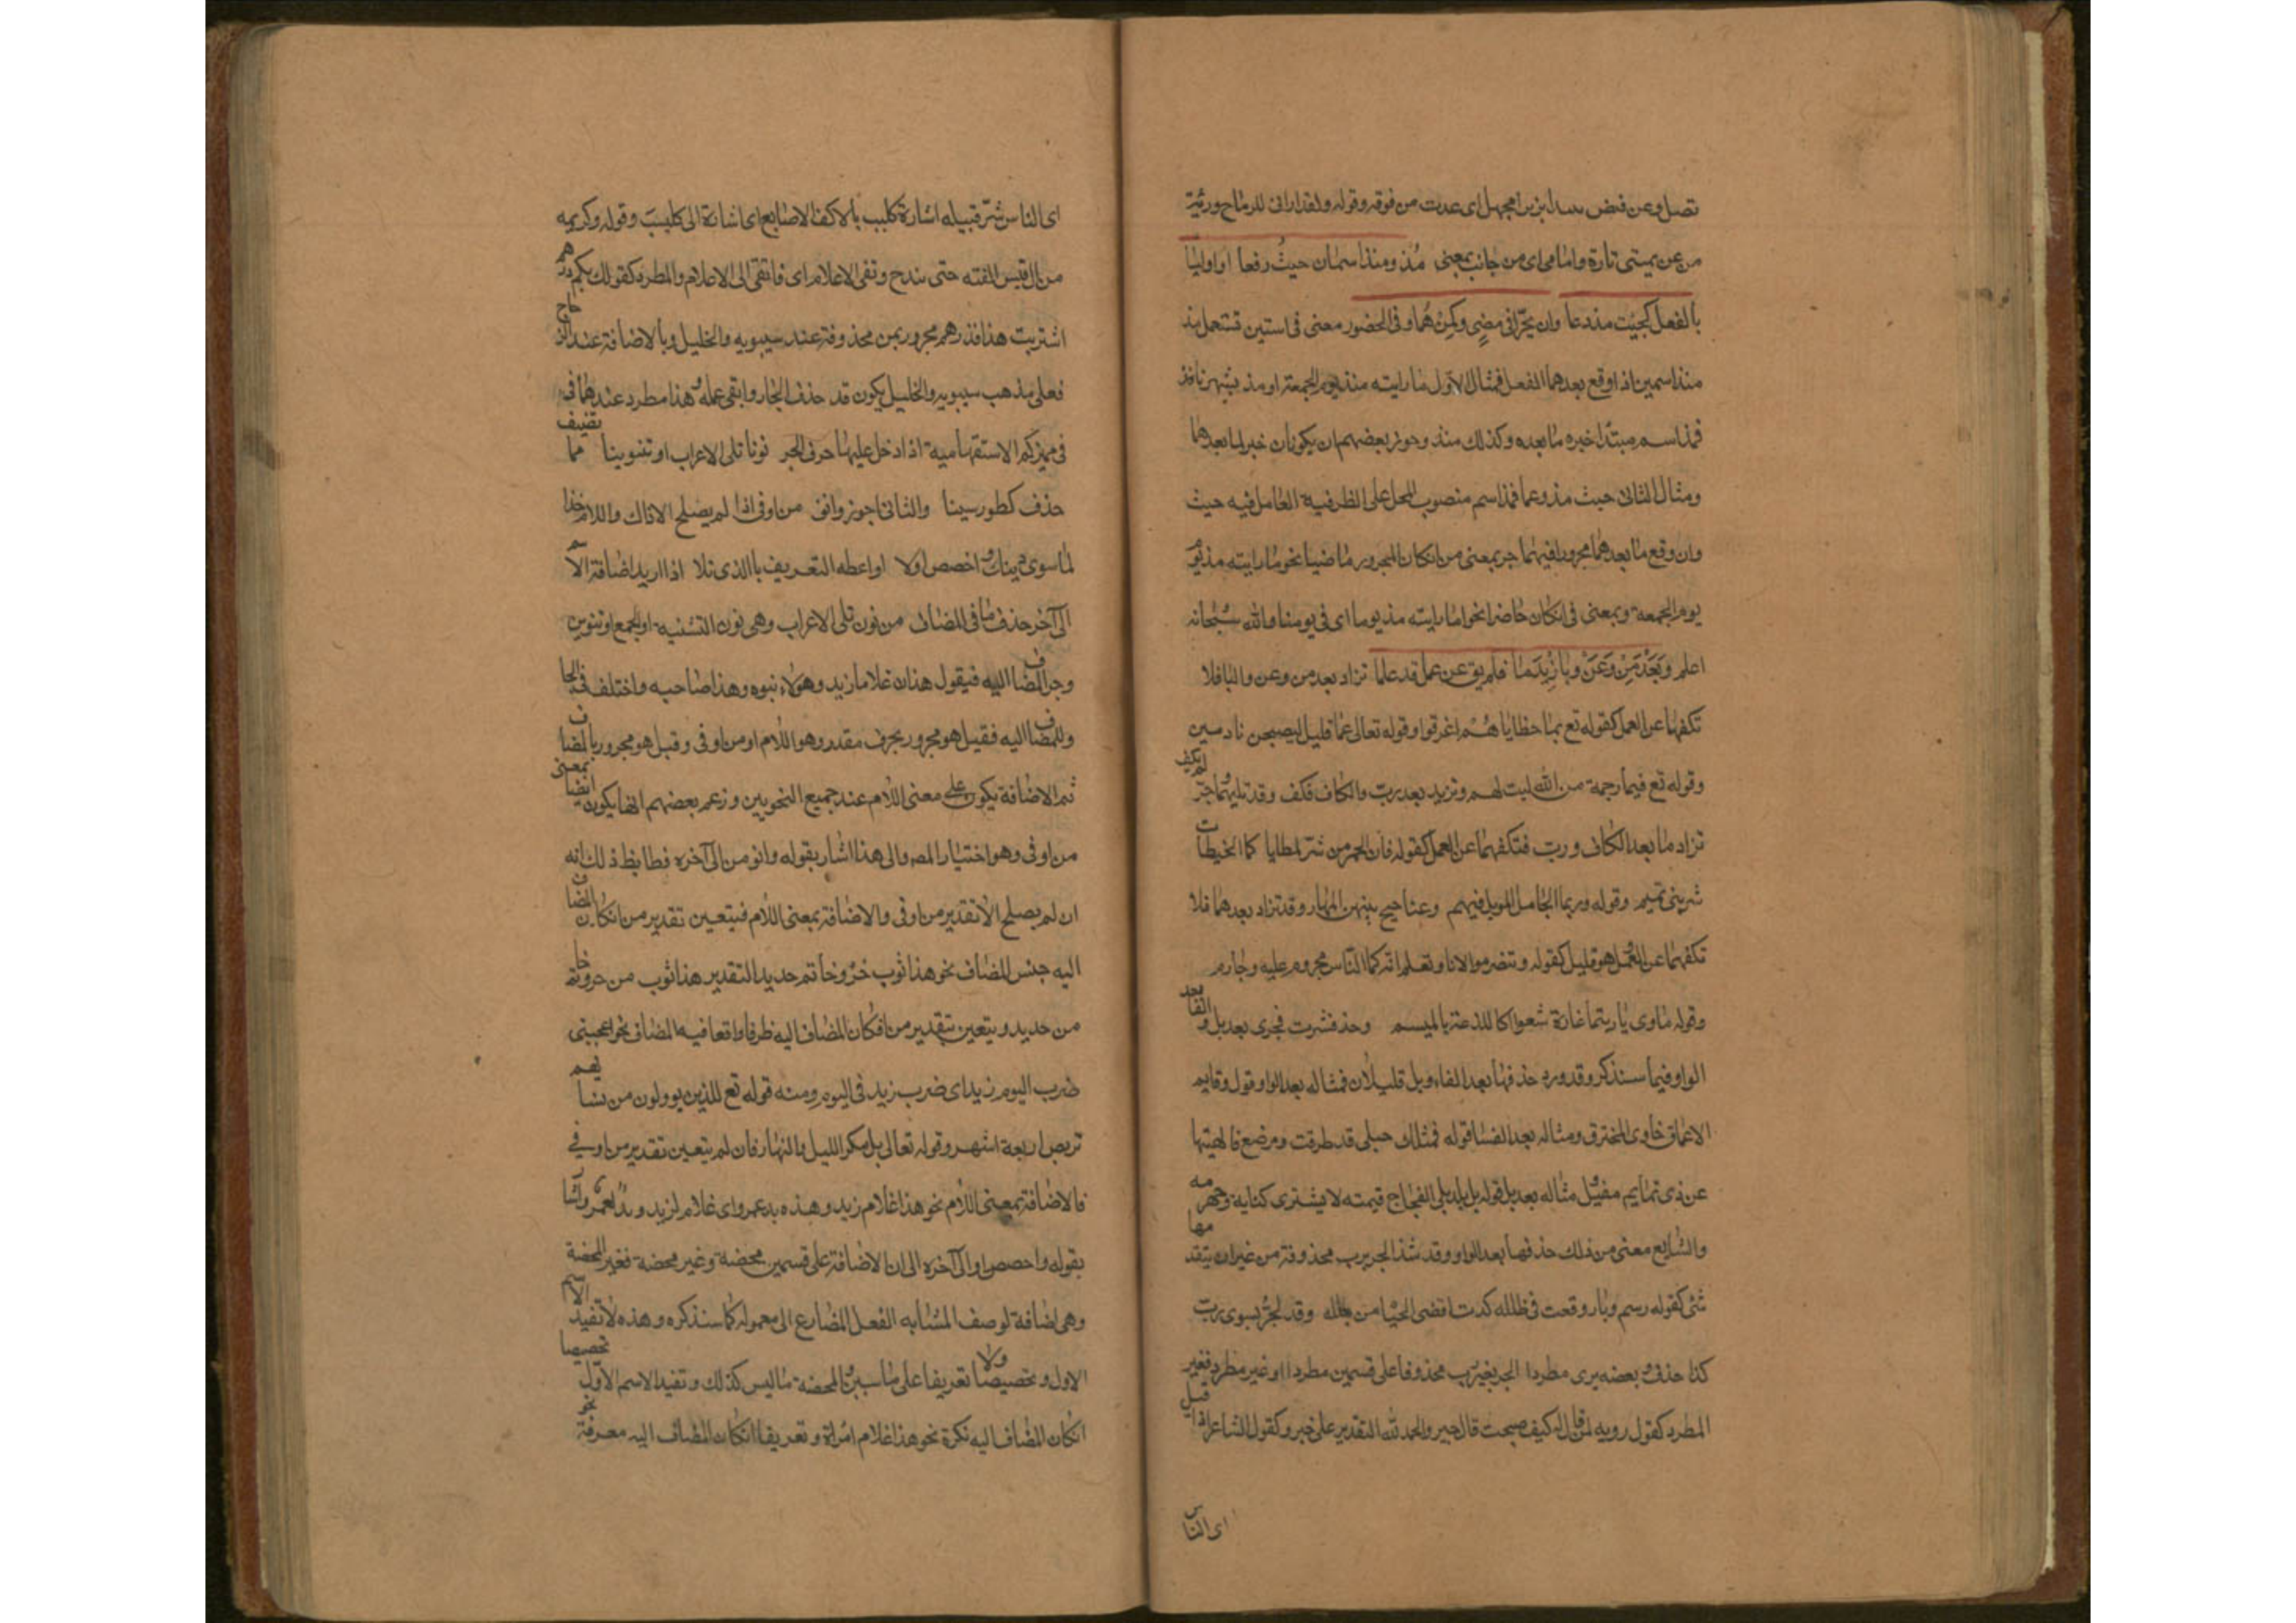 تصل وعن فيض ببيداء بزيزاء مجهل اى غدت من فوقه وقوله ولقد ارانى للرماح ورئية
من عن يمينى تارة وامامى اى من جانب بمعنى مذ ومنذ اسمان حيث رفعا او اوليا
بالفعل كجيت مذ دعا وان يجرا فى مضى وكمن هما وفى الحضور معنى فى استبن تستعمل مذ
منذ اسمين اذا وقع بعدهما الفعل فمثال الاول ما رايته منذ يوم الجمعة او مذ شهرنا فمذ
فمذ اسم مبتدا خبره ما بعده وكذلك منذ وجوز بعضهم ان يكونان خبر لما بعدهما
ومثال الثانى حيث مذ وعما فمذ اسم منصوب المحل على الظرفية العامل فيه حيث
وان وقع ما بعدهما مجرورا فيهما جر بمعنى من انكان المجرور ماضيا نحو ما رايته مذ يوم
يوم الجمعة وبمعنى فى انكان حاضرا نحو ما رايته مذ يومنا اى فى يومنا والله سبحانه
اعلم وبعد من وعن وبا زيد ما فلم يعق عن عمل قد علما تزاد بعد من وعن والبا فلا
تكفها عن العمل كقوله تع مما خطاياهم اغرقوا وقوله تعالى عما قليل ليصبحن نادمين
وقوله تع فبما رحمة من الله لنت لهم وزيد بعد رب والكاف فكف وقد تليهما جر لم يكف
تزاد ما بعد الكاف ورب فتكفهما عن العمل كقوله فان الحمر من شر المطايا كما الحبطات
شر بنى تميم وقوله ربما الجامل الموبل فيهم وعناجيج بينهن المهار وقد تزاد بعدهما فلا
تكفهما عن العمل وهو قليل كقوله وننصر مولانا ونعلم انه كما الناس مجروم عليه وجارم
وقوله ماوى يا ربتما غارة شعوا كاللذعة بالميسم وحذفت رب فجرت بعد بل والفا
الواو فيما سنذكر وقد ورد حذفها بعد الفاء وبل قليلا فمثاله بعد الواو قول وقاتم
الاعماق خاوى المخترق ومثاله بعد الفا قوله فمثلك حبلى قد طرقت ومرضع فالهيتها
عن ذى تمايم مغيل مثاله بعد بل قوله بل بلد ملى الفجاج قتمه لا يشترى كتانه وجهرمه
والشايع معنى من ذلك حذفها بعد الواو وقد شذ الجر برب محذوفة من غير ان يتقدمها
شئ كقوله رسم دار وقفت فى طلله كدت اقضى الحيا من جلله وقد يجر بسوى رب
كذا حذف وبعضه يرى مطردا الجر بغير رب محذوفا على قسمين مطردا او غير مطرد فغير
المطرد كقول روبه لمن قال له كيف صبحت قال خير والحمد لله التقدير على خير وكقول الشاعر اذا قيل
اى الناس
اى الناس شر قبيلة اشارة كليب بالاكف الاصابع اى اشارة الى كليب وقوله وكريمه
من ال قيس الفته حتى تبذخ وتفى الاعلام اى فاتقى الى الاعلام والمطرد كقولك بكم درهم
اشتريت هذا فدرهم مجرور بمن محذوفة عند سيبويه والخليل وبالاضافة عند الزجاج
فعلى مذهب سيبويه والخليل يكون قد حذف الجار وابقى عمله وهذا مطرد عندهما فى
فى مميز كم الاستفهامية اذا دخل عليها حرف الجر نونا تلى الاعراب او تنوينا مما تضيف
حذف كطور سينا والثانى اجرر وانو من او فى اذا لم يصلح الا ذاك واللام خذا
لما سوى ذينك واخصص اولا او اعطه التعريف بالذى تلا اذا اريد اضافة الاسم
الى آخر حذف ما فى المضاف من نون تلى الاعراب وهى نون التثنية او الجمع او تنوين
وجر المضاف اليه فيقول هذان غلاما زيد وهولاء بنوه وهذا صاحبه واختلف فى الجا
وللمضاف اليه فقيل هو مجرور بحرف مقدر وهو اللام او من او فى وقيل هو مجرور بالمضاف
ثم الاضافة يكون على معنى اللام عند جميع النحويين وزعم بعضهم انها يكون ايضا بمعنى
من او فى وهو اختيار المص والى هذا اشار بقوله وانو من الى آخره فضابط ذلك انه
ان لم يصلح الا تقدير من او فى والاضافة بمعنى اللام فيتعين تقدير من انكان المضاف
اليه جنس المضاف نحو هذا ثوب خز وخاتم حديد التقدير هذا ثوب من خز وخاتم
من حديد ويتعين تقدير من فكان المضاف اليه ظرفا واقعا فيه المضاف نحو اعجبنى
ضرب اليوم زيد اى ضرب زيد فى اليوم ومنه قوله تع للذين يوولون من نسايهم
تربص اربعة اشهر وقوله تعالى بل مكر الليل والنهار فان لم يتعين تقدير من او فى
فالاضافة بمعنى اللام نحو هذا غلام زيد وهذه يد عمرو اى غلام لزيد ويد لعمرو واشا
بقوله واخصص اولا الى آخره الى ان الاضافة على قسمين محضة وغير محضة فغير المحضة
وهى اضافة لوصف المشابه الفعل المضارع الى معموله كما سنذكره وهذه لا تفيد الاسم
الاول وتخصيصا ولا تعريفا على ما سيبين والمحضة ما ليس كذلك وتفيد الاسم الاول تخصيصا
انكان المضاف اليه نكرة نحو هذا غلام امراة وتعريفا انكان المضاف اليه معرفة نحو